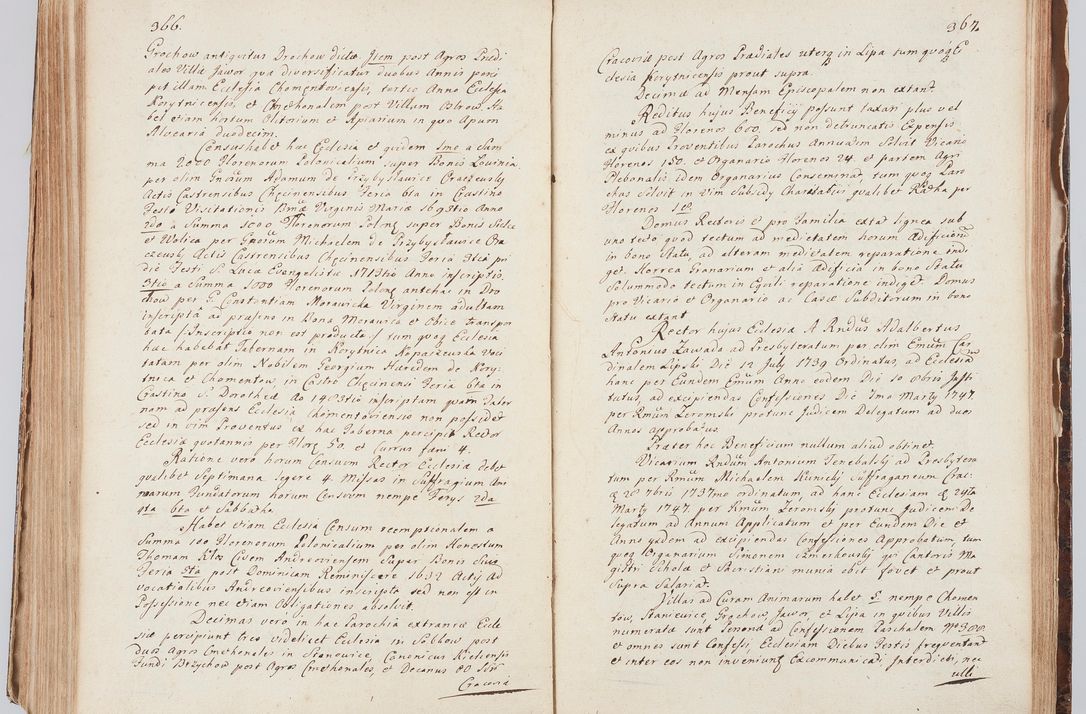 366.
Grochow antiquitus Drochow dicto. Item post Agros Predi-
ales Villæ Jawor qua diversificatur duobus Annis perci-
pit illam Ecclesia Chomentoviensis, tertio Anno Ecclesia
Korytnicensis, et Cmethonalem post Villam Ostrow. Ha-
bet etiam hortum Olitorium et Apiarium in quo Apum
Alvearia duodecim.
Census habet hac Ecclesia et quidem 1mo a Sum-
ma 2000 Florenorum Polonicalium super Bonis Lovinia
per olim Gnosum Adamum de Przybysławice
Actis Castrensibus Chęcinensibus Feria 6ta in Crastino
Festo Visitationis Bmæ Virginis Mariæ Anno
2do a Summa 1000 Florenorum Poln: super Bonis
et Wolica per Gnosum Michaelem de Przybysławice
Actis Castrensibus Chęcinensibus Feria 3tia pri-
die Festi S. Lucæ Evangelistæ Anno inscriptis.
3tio a Summa 1000 Florenorum antehac in Dro-
chow per G. Constantiam Morawicka Virginem adultam
inscripta ad præsens in Bona Morawica et Obice transpor-
tata /:Inscriptio non est producta:/ tum quoq Ecclesia
hac habebat Tabernam in Korytnica voci-
tatam per olim Nobilem Georgium Hæredem de Kory-
tnica et Chomentow, in Castro Chęcinensi Feria 6ta in
Crastino S. Dorotheæ Ao inscriptam quam Taber-
nam ad præsens Ecclesia Chomentoviensis non possidet
sed in vim Proventus ex hac Taberna percipit Rector
Ecclesiæ quotannis per Flore 50. et Currus fæni 4.
Ratione vero horum Censuum Rector Ecclesiæ debet
qualibet Septimana legere 4. Missas in Suffragium Ani-
marum Fundatorum horum Censuum nempe Ferys 2da
4ta 6ta et Sabbatho.
Habet etiam Ecclesia Censum reemptionalem a
Summa 100 Florenorum Polonicalium per olim Honestum
Thomam Kłos Civem Andreoviensem super Bonis Suis
Feria 5ta post Dominicam Reminiscere 1632 Actis Ad-
vocatialibus Andreoviensibus inscripto sed non est in
Possessione nec etiam Obligationes absolvit.
Decimas vero in hac Parochia extraneæ Eccle-
siæ percipiunt tres videlicet Ecclesia in Sobkow post
duos Agros Cmethonales in Stanowice, Canonicus Kielcensis
Fundi Brzychow post Agros Cmethonales, et Decanus
Cracoviæ
367.
Cracoviæ post Agros Prædiales uterq in Lipa tum quoq Ec-
clesia Korytnicensis prout supra.
Decimæ ad Mensam Episcopalem non extant.
Reditus hujus Beneficij possunt taxari plus vel
minus ad Florenos 600, sed non detruncatis Expensis
ex quibus Proventibus Parochus Annuatim Solvit Vicario
Florenos 150. et Organario Florenos 24. et partem Agri
Plebanalis idem Organarius Conseminat, tum quoq Paro-
chus solvit in Vim Subsidy Charitativi qualibet Ratha per
Florenos 10.
Domus Rectoris et pro Familia extat lignea sub
uno tecto quod tectum ad medietatem horum Ædificiorum
in bono Statu, ad alteram medietatem reparatione indi-
get. Horrea Granarium et alia Ædificia in bono Statu
Solummodo tectum in Equili reparatione indiget. Domus
pro Vicario et Organario ac Casæ Subditorum in bono
Statu extant.
Rector hujus Ecclesiæ A Rndus Adalbertus
Antonius Zawada ad Presbyteratum per olim Emum Car-
dinalem Lipski Die 12 July 1739 Ordinatus, ad Ecclesiam
hanc per Eundem Emum Anno eodem Die 10 8bris Insti-
tutus, ad excipiendas Confessiones Die 2mo Marty 1747
per Rmum Zeromski protunc Judicem Delegatum ad duos
Annos approbatus.
Præter hoc Beneficium nullum aliud obtinet.
Vicarium Rndum Antonium Tenebalski ad Presbytera-
tum per Rmum Michaelem Kunicki Suffraganeum Crac:
28 7bris 1737mo ordinatum, ad hanc Ecclesiam 24ta
Marty 1747 per Rmum Zeromski protunc Judicem De-
legatum ad Annum Applicatum et per Eundem Die et
Anno quidem ad excipiendas Confessiones Approbatum tum
quoq Organarium Simonem qui Cantoris Ma-
gistri Scholæ et Sacristiani munia obit fovet et prout
supra Salariat.
Villas ad Curam Animarum habet 5. nempe Chomen-
tow, Stanowice, Grochow, Jawor, et Lipa in quibus Villis
numerata sunt Personæ ad Confessionem Paschalem No 300
et omnes sunt Confessi, Ecclesiam Diebus Festis frequentant
et inter eos non inveniunt Excommunicati Interdicti, nec
ulli